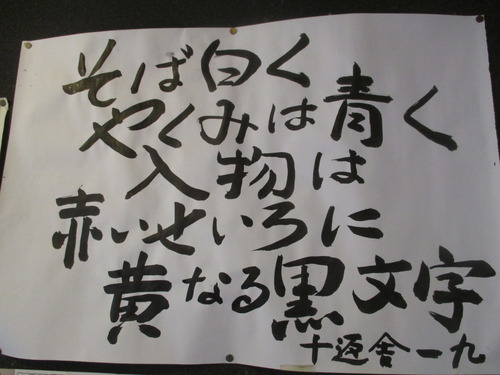 そば白く
やくみは青く
入物は
赤いせいろに
黄なる黒文字
十返舎一九